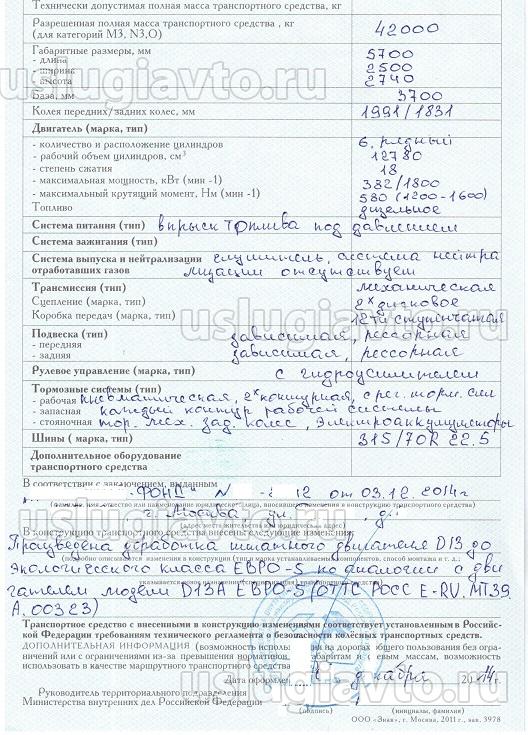 Технически допустимая полная масса транспортного средства, кг
Разрешенная полная масса транспортного средства , кг
(для категорий М3, N3,О) 42000
Габаритные размеры, мм
- длина 5700
- ширина 2500
- высота 2740
База, мм 3700
Колея передних/задних колес, мм 1991/1831
Двигатель (марка, тип)
- количество и расположение цилиндров 6, рядный
- рабочий объем цилиндров, см³ 12780
- степень сжатия 18
- максимальная мощность, кВт (мин -1) 382/1800
- максимальный крутящий момент, Нм (мин -1) 580 (1200-1600)
Топливо дизельное
Система питания (тип) впрыск топлива под давлением
Система зажигания (тип)
Система выпуска и нейтрализации глушитель, система нейтра
отработавших газов лизации отсутствует
Трансмиссия (тип) механическая
Сцепление (марка, тип) 2х дисковое
Коробка передач (марка, тип) 12ти ступенчатая
Подвеска (тип)
- передняя зависимая, рессорная
- задняя зависимая, рессорная
Рулевое управление (марка, тип) с гидроусилителем
Тормозные системы (тип)
- рабочая пневматическая, 2х контурная, с рег. торм. сил
- запасная каждый контур рабочей системы
- стояночная тор. мех. зад. колес,
Шины ( марка, тип) 315/70R 22.5
Дополнительное оборудование
транспортного средства
В соответствии с заключением, выданным
"ФОНД" N 12 от 03.12.2014г
г. Москва ул. д.
В конструкцию транспортного средства внесены следующие изменения:
Произведена доработка штатного двигателя D13 до
экологического класса ЕВРО-5 по аналогии с дви
гателем модели D13A ЕВРО-5 (ОТТС РОСС E-RU. МТ39.
А. 00323)
Транспортное средство с внесенными в конструкцию изменениями соответствует установленным в Россий-
ской Федерации требованиям технического регламента о безопасности колёсных транспортных средств.
ДОПОЛНИТЕЛЬНАЯ ИНФОРМАЦИЯ (возможность использования на дорогах общего пользования без огра-
ничений или с ограничениями из-за превышения нормативов по габаритам и осевым массам, возможность
использовать в качестве маршрутного транспортного средства
Дата оформления декабря 2014г.
Руководитель территориального подразделения
Министерства внутренних дел Российской Федерации
(подпись) (инициалы, фамилия)
ООО «Знак», г. Москва, 2011 г., зак. 3978
uslugiavto.ru
uslugiavto.ru
uslugiavto.ru
uslugiavto.ru